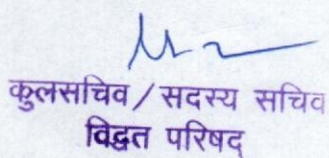 कुलसचिव/सदस्य सचिव
विद्वत परिषद्